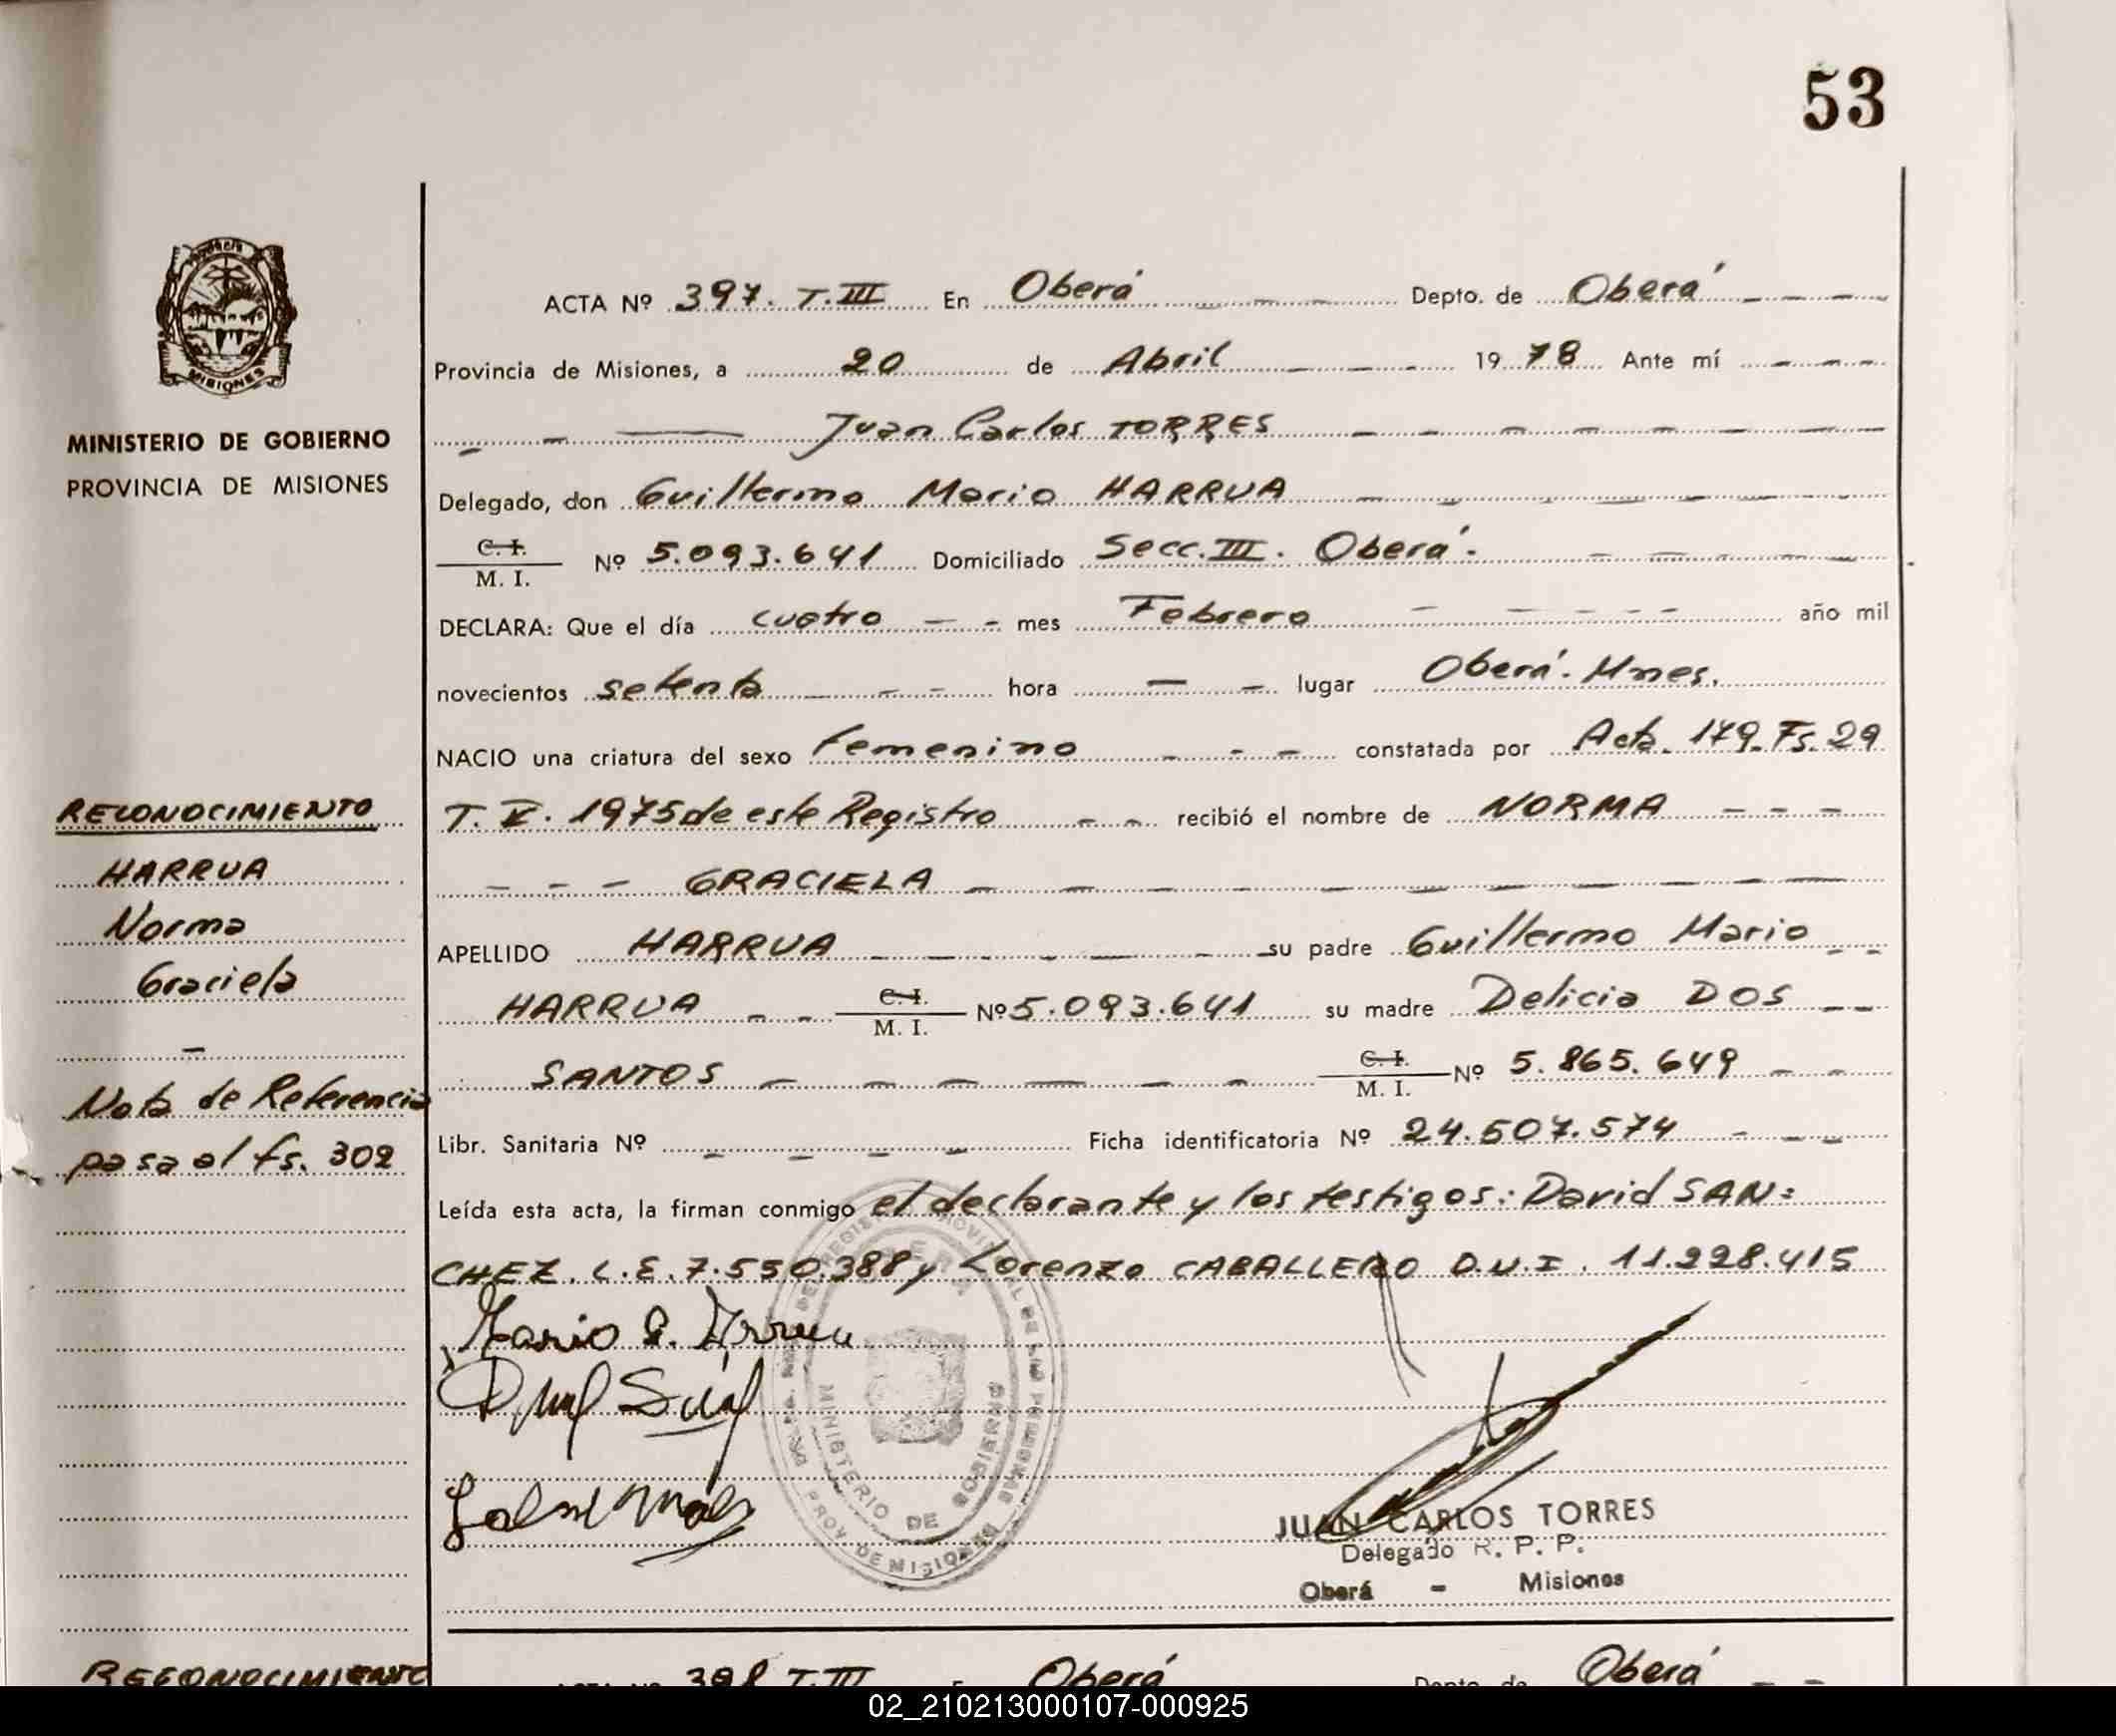 53
MISIONES
MINISTERIO DE GOBIERNO
PROVINCIA DE MISIONES
RECONOCIMIENTO
HARRUA
Norma
Graciela
Nota de Referencia
pasa al fs. 302
ACTA Nº 397. T. III En Oberá Depto. de Oberá
Provincia de Misiones, a 20 de Abril 1978 Ante mí
Juan Carlos TORRES
Delegado, don Guillermo Mario HARRUA
C. I.
M. I. Nº 5.093.641 Domiciliado Secc. III. Oberá.
DECLARA: Que el día cuatro mes Febrero año mil
novecientos setenta hora lugar Oberá. Mnes.
NACIO una criatura del sexo Femenino constatada por Acta. 179. Fs. 29
T. V. 1975 de este Registro recibió el nombre de NORMA
GRACIELA
APELLIDO HARRUA su padre Guillermo Mario
HARRUA C. I.
M. I. Nº 5.093.641 su madre Delicia DOS
SANTOS C. I.
M. I. Nº 5.865.649
Libr. Sanitaria Nº Ficha identificatoria Nº 24.507.574
Leída esta acta, la firman conmigo el declarante y los testigos: David SAN=
CHEZ. L.E. 7.550.388 y Lorenzo CABALLERO D.N.I. 11.228.415
MINISTERIO DE GOBIERNO
PROV. DE MISIONES
JUAN CARLOS TORRES
Delegado R. P. P.
Oberá - Misiones
RECONOCIMIENTO
ACTA Nº 398 T. III En Oberá Depto. de Oberá
02_210213000107-000925